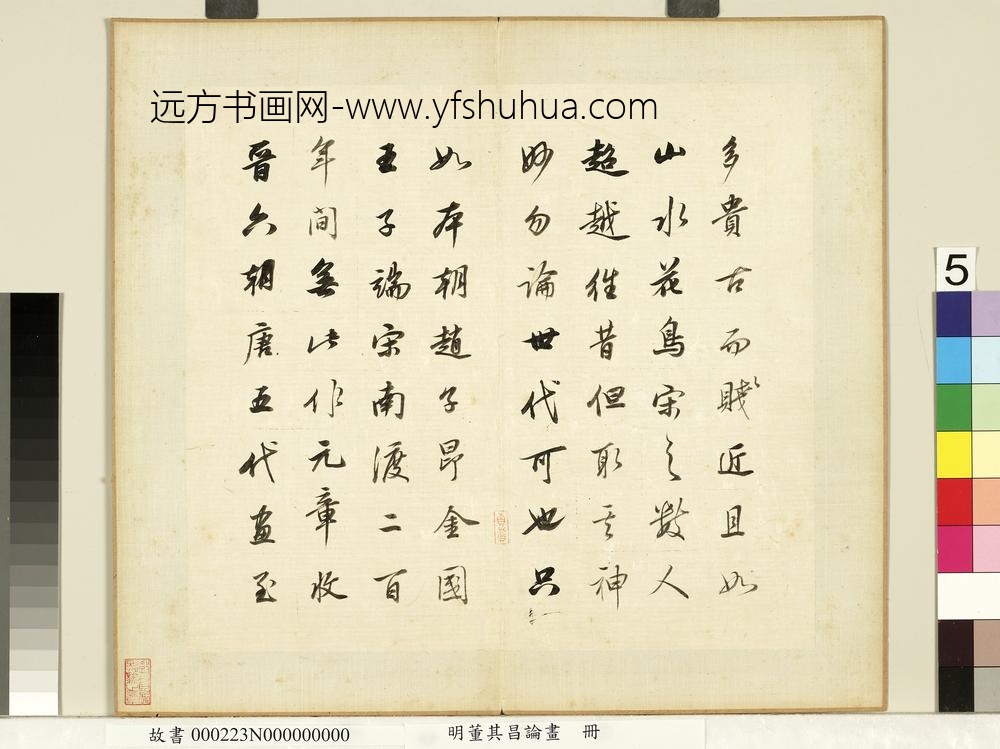 远方书画网-www.yfshuhua.com
多貴古而賤近且如
山水花鳥宋之數人
超越往昔但取其神
妙勿論世代可也只
如本朝趙子昂金國
王子端宋南渡二百
年間無此作元章收
晉六朝唐五代畫至
5
故書 000223N000000000
明董其昌論畫 冊